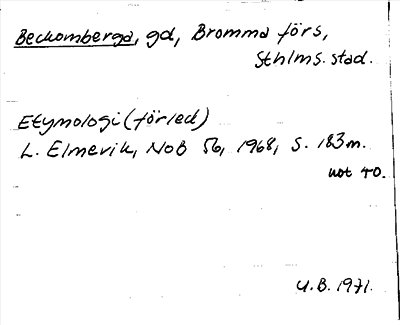 Beckomberga, gd, Bromma förs,
Sthlms. stad.
Etymologi (förled)
L. Elmevik, NoB 56, 1968, s. 183 m.
not 40.
U.B. 1971.